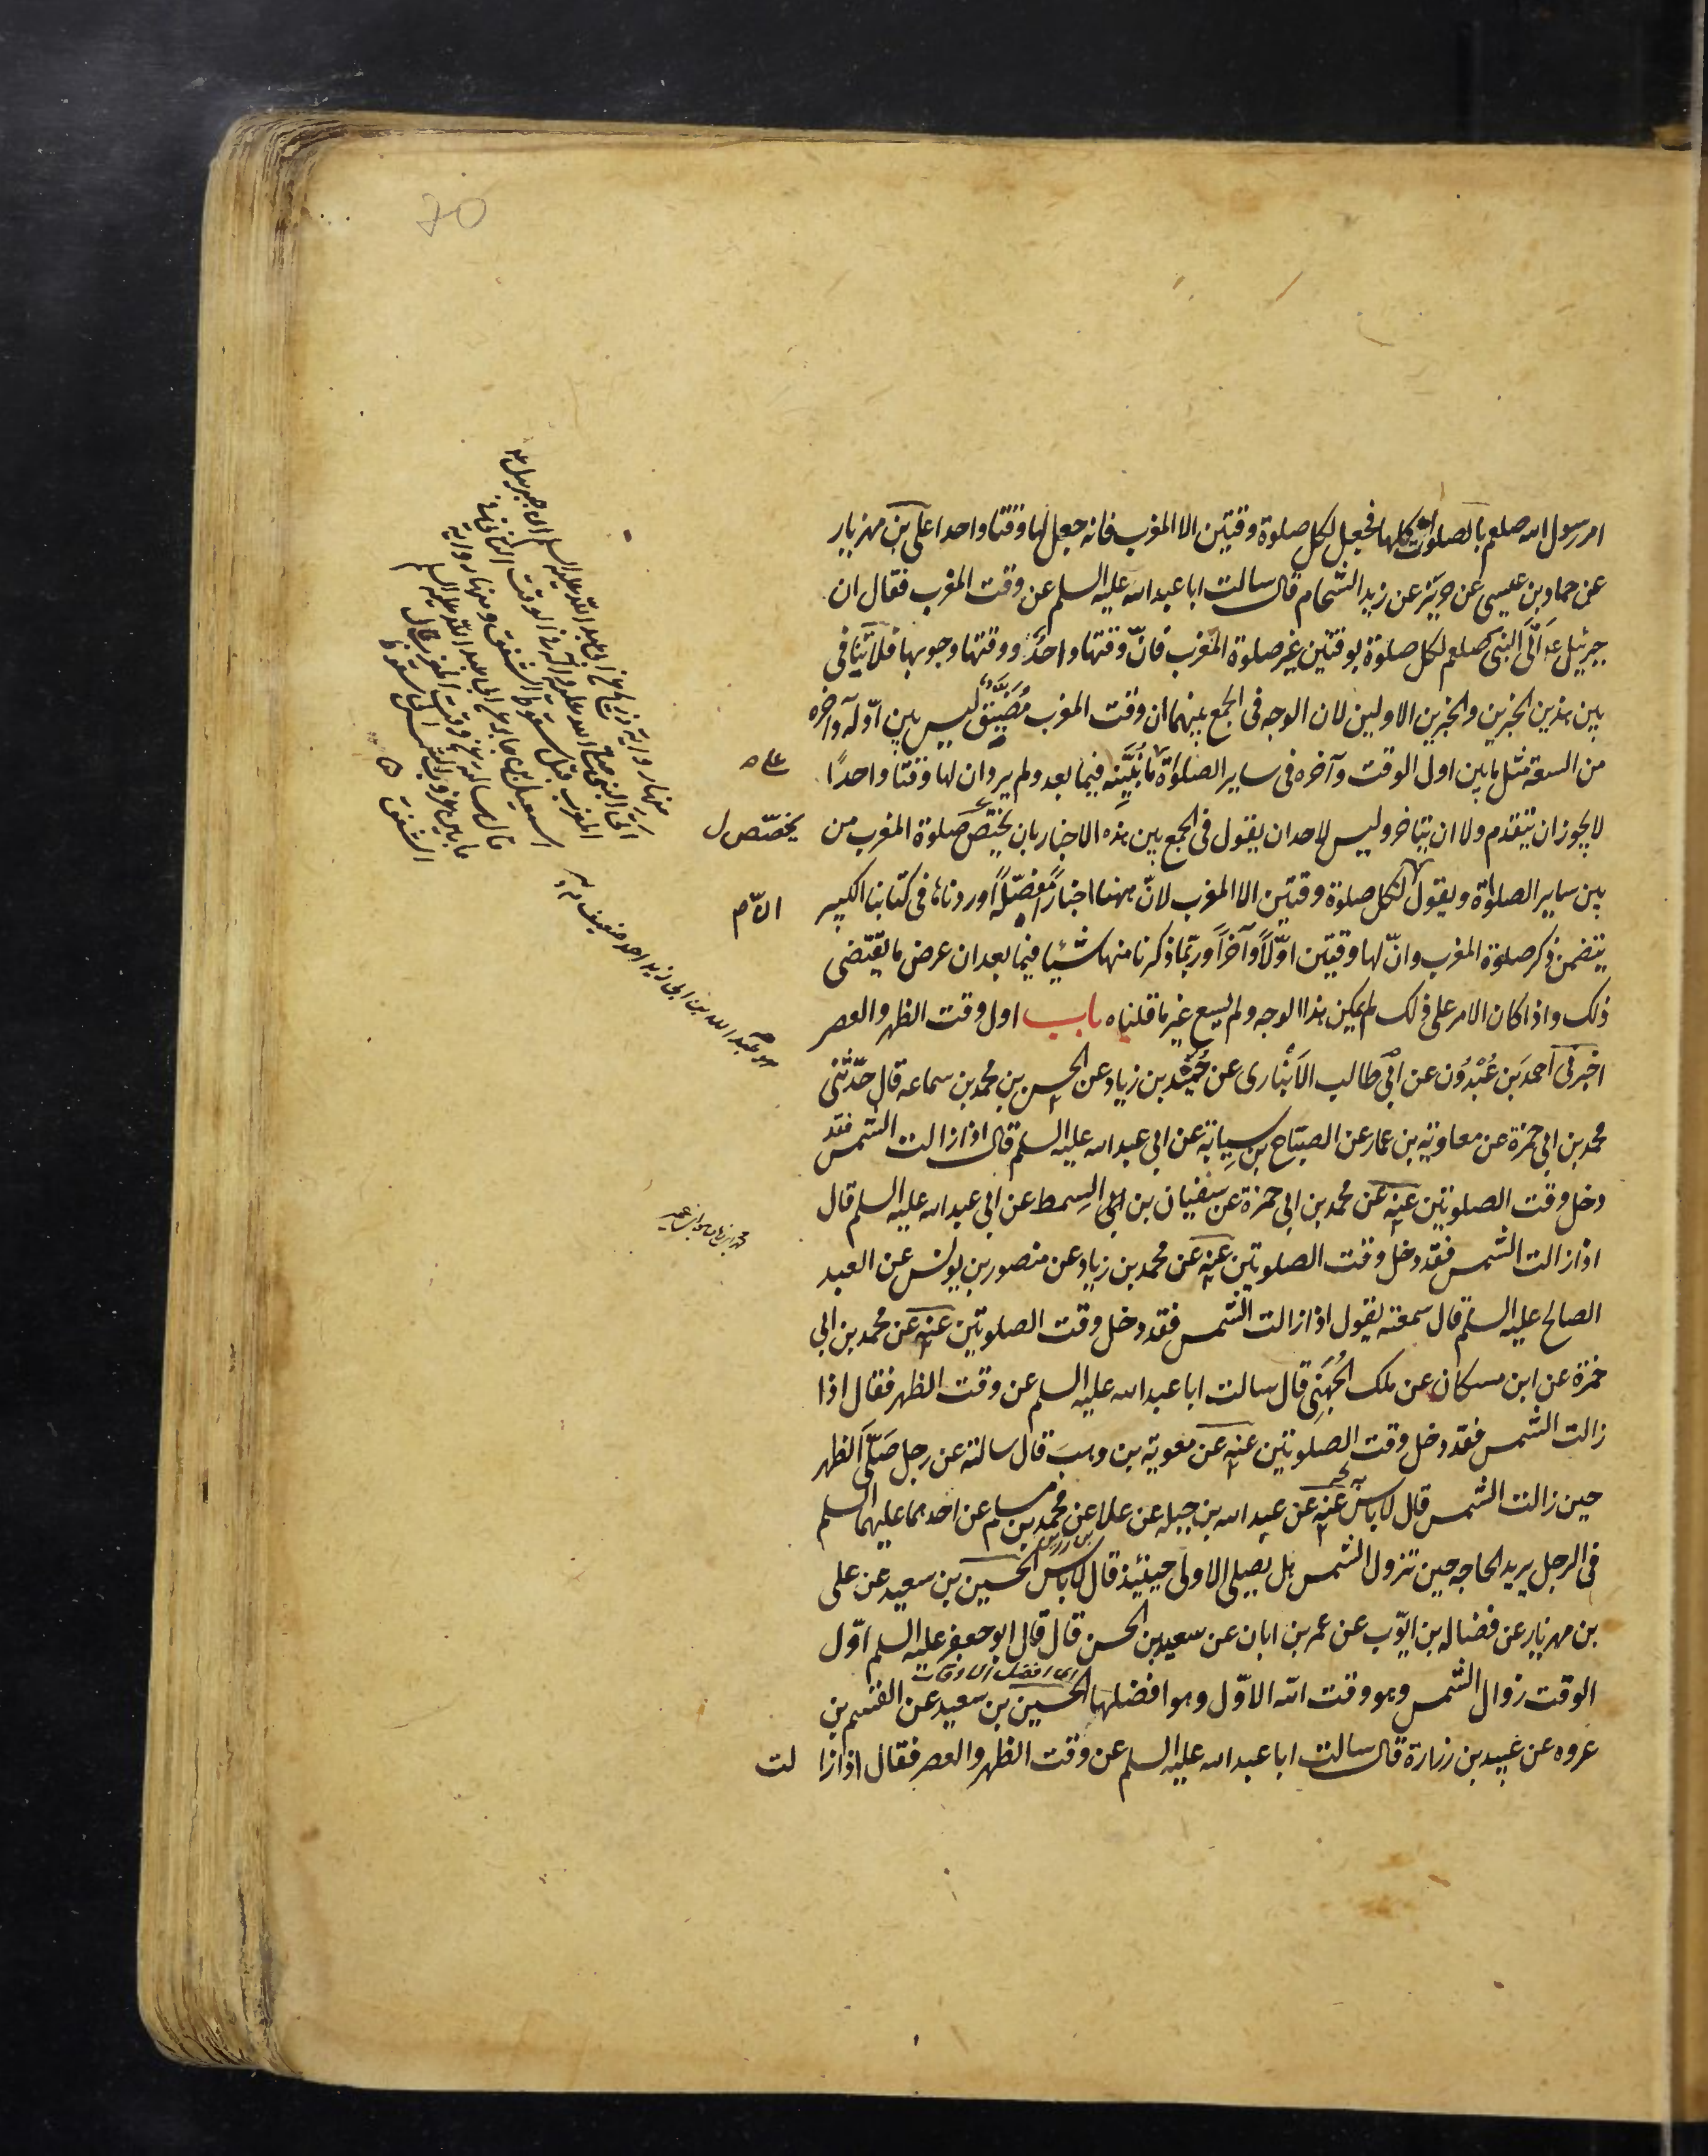 امر رسول الله صلعم بالصلوات كلها فجعل لكل صلوة وقتين الا المغرب فانه جعل لها وقتا واحدا على بن مهزيار
عن حماد بن عيسى عن حريز عن زيد الشحام قال سالت ابا عبد الله عليه السلم عن وقت المغرب فقال ان
جبرئيل ع اتى النبى صلعم لكل صلوة بوقتين غير صلوة المغرب فانّ وقتها واحدٌ ووقتها وجوبها فلا تنافى
بين هذين الخبرين والخبرين الاولين لان الوجه فى الجمع بينهما ان وقت المغرب مُضَيَّق ليس بين اوّله وآخره
من السعة مثل ما بين اول الوقت وآخره فى ساير الصلوة ما نُبَيِّنه فيما بعد ولم يرد ان لها وقتا واحدًا
لا يجوز ان يتقدم ولا ان يتاخر وليس لاحد ان يقول فى الجمع بين هذه الاخبار بان يختص صلوة المغرب من
يخصّص ل
بين ساير الصلوة ويقول لكل صلوة وقتين الا المغرب لانّ ههنا اخبارًا مفصّلةً اوردناها فى كتابنا الكبير
يتضمن ذكر صلوة المغرب وانّ لها وقتين اوّلًا وآخرًا وربّما ذكرنا منها شيئا فيما بعد ان عرض ما يقتضى
ذلك واذا كان الامر على ذلك لم يمكن هذا الوجه ولم يسع غير ما قلناه باب اول وقت الظهر والعصر
اخبرنى احمد بن عُبْدُون عن ابى طالب الاَنْبارى عن حُمَيْد بن زياد عن الحسن بن محمد بن سماعه قال حدّثنى
محمد بن ابى حمزة عن معاوية بن عمار عن الصبّاح بن سِيابة عن ابى عبد الله عليه السلم قال اذا زالت الشمس فقد
دخل وقت الصلوتين عنه عن محمد بن ابى حمزة عن سفيان بن ابى السمط عن ابى عبد الله عليه السلم قال
اذا زالت الشمس فقد دخل وقت الصلوتين عنه عن محمد بن زياد عن منصور بن يونس عن العبد
الصالح عليه السلم قال سمعته يقول اذا زالت الشمس فقد دخل وقت الصلوتين عنه عن محمد بن ابى
حمزة عن ابن مسكان عن ملك الجُهَنِى قال سالت ابا عبد الله عليه السلم عن وقت الظهر فقال اذا
زالت الشمس فقد دخل وقت الصلوتين عنه عن معوية بن وهب قال سالته عن رجل صَلّى الظهر
حين زالت الشمس قال لا باس به عنه عن عبد الله بن جبله عن علا عن محمد بن مسلم عن احدهما عليهما السلم
فى الرجل يريد الحاجه حين تزول الشمس هل يصلى الاولى حينئذ قال لا باس الحسين بن سعيد عن على
بن مهزيار عن فضاله بن ايّوب عن عمر بن ابان عن سعيد بن الحسن قال قال ابو جعفر عليه السلم اوّل
اى افضل الاوقات
الوقت زوال الشمس وهو وقت الله الاوّل وهو افضلها الحسين بن سعيد عن القسم بن
عروه عن عبيد بن زرارة قال سالت ابا عبد الله عليه السلم عن وقت الظهر والعصر فقال اذا زا لت